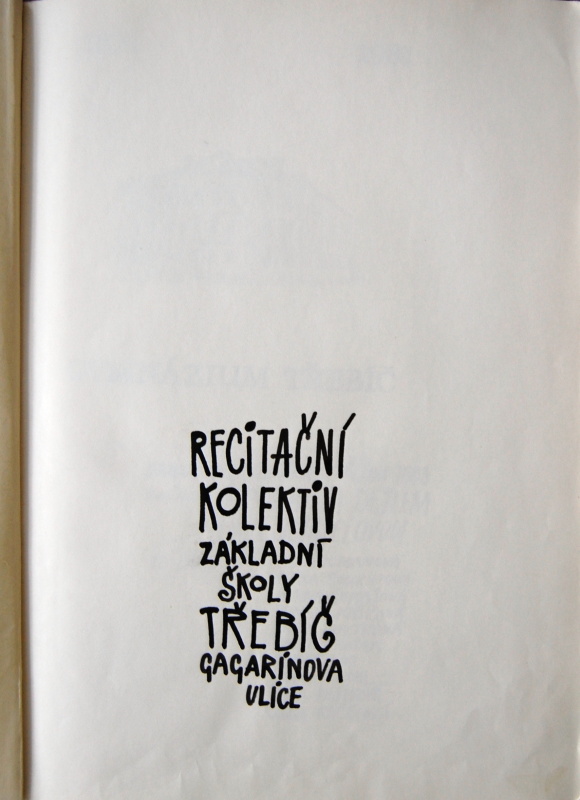 RECITAČNÍ
KOLEKTIV
ZÁKLADNÍ
ŠKOLY
TŘEBÍČ
GAGARINOVA
ULICE